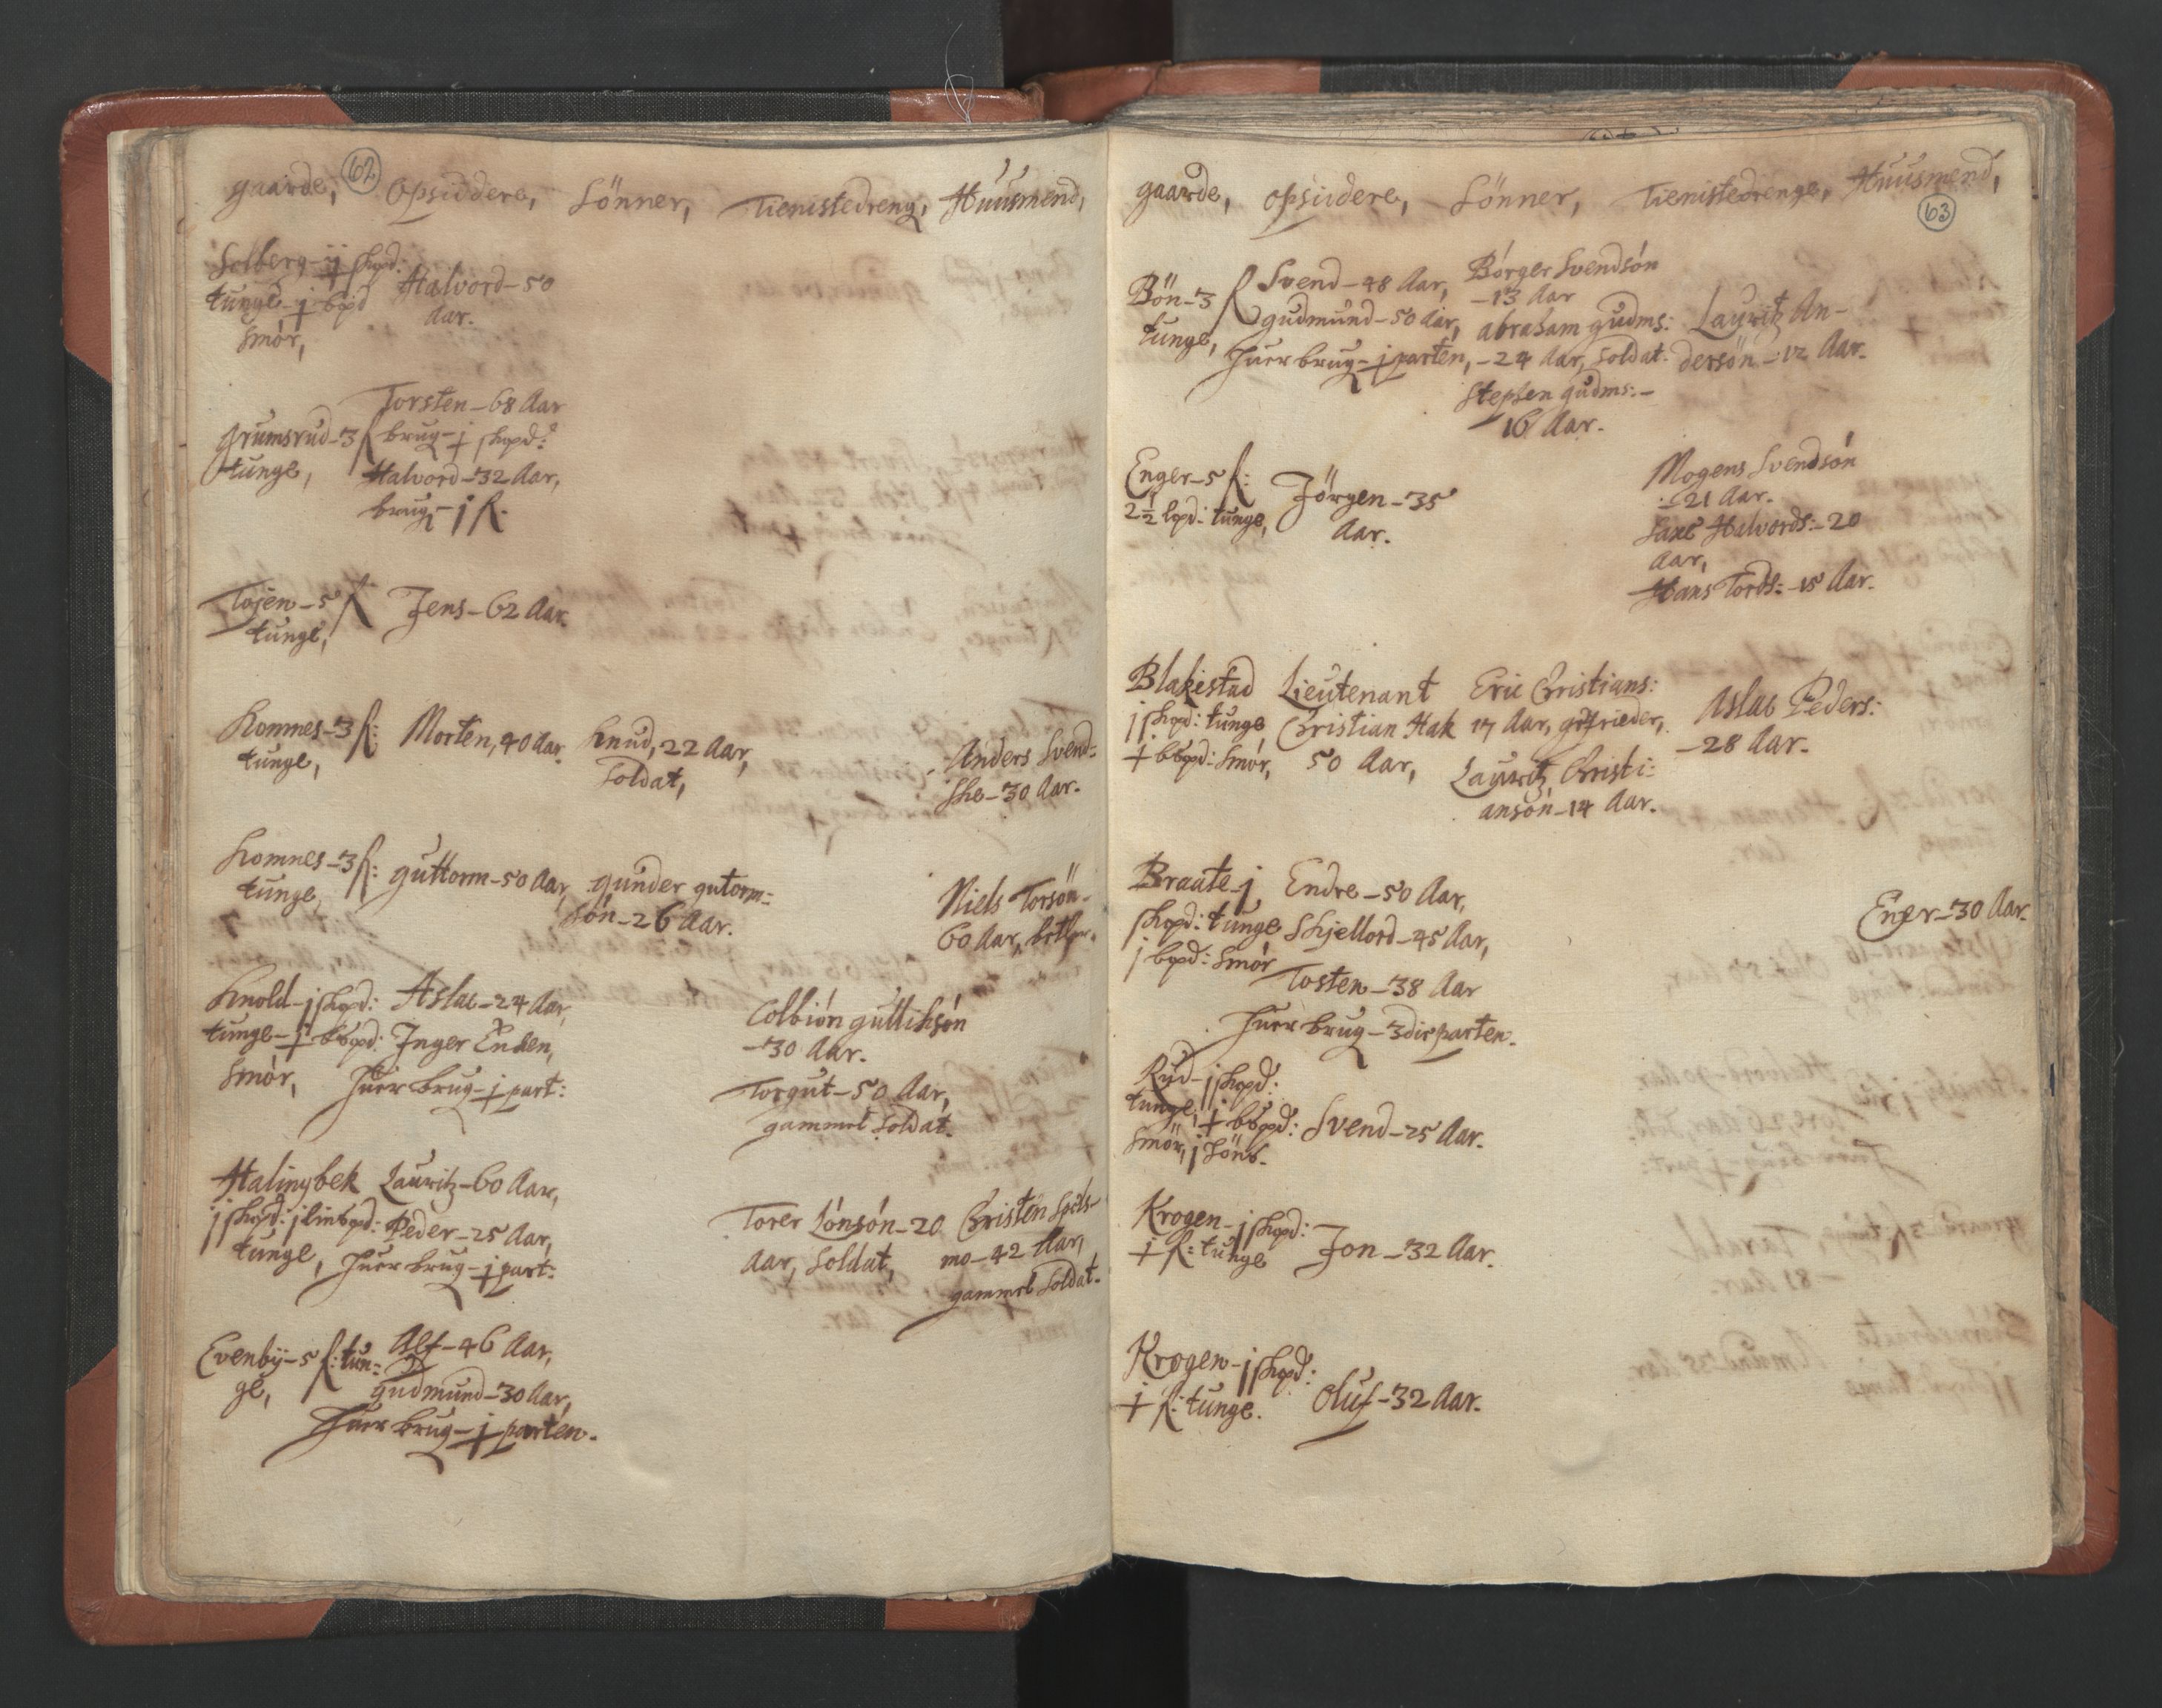 62
gaarde, Opsiddere, Sönner, Tienistedreng, Huusmend,
Solberg - ij skpd:
tunge - j bpd
Smör,
Halvord - 50
Aar.
Grumsrud - 3
tunge,
Torsten - 68 Aar
brug - j skpd:
Halvord - 32 Aar,
brug -
Tojen - 5
tunge,
Jens - 62 Aar.
Komnes - 3
tunge,
Morten, 40 Aar.
Knud, 22 Aar,
Soldat,
Anders Svend-
ske - 30 Aar.
Komnes - 3
tunge,
guttorm - 50 Aar,
gunder gutorm-
sön - 26 Aar.
Niels Torsön -
60 Aar, betler.
Knold - j skpd:
tunge - bpd:
Smör,
Aslac - 24 Aar,
Inger Enken,
Huer brug - part:
Colbiön guttiksön
- 30 Aar.
Torgut - 50 Aar,
gammel Soldat.
Halingbek
j skpd: j
tunge,
Lauritz - 60 Aar,
Peder - 25 Aar,
Huer brug - part:
Torer Lönsön - 20
Aar, Soldat,
Christen Spels-
mo - 42 Aar,
gammel Soldat.
Evenbÿ - 5 tun-
ge,
Alf - 46 Aar,
gudmund - 30 Aar,
Huer brug - parten.
gaarde, opsiidere, Sönner, Tienistedrenge, Huusmend,
63
Bön - 3
tunge,
Svend - 48 Aar,
gudmund - 50 Aar,
Huer brug - parten,
Börger Svendsön
- 13 Aar
abraham gudms:
- 24 Aar, Soldat:
Stephen gudms: -
16 Aar.
Lauritz An-
dersön - 12 Aar.
Enger - 5
2½ lpd: tunge,
Jörgen - 35
Aar.
Mogens Svendsön
- 21 Aar.
Saxe Halvords: - 20
Aar,
Hans Tords: - 15 Aar.
Blakistad
j skpd: tunge
bpd: Smör,
Lieutenant
Christian Hak
50 Aar,
Eric Christians:
17 Aar, gefrieder,
Lauritz Christi:
ansön - 14 Aar.
Aslac Peders:
- 28 Aar.
Braate - j
skpd: tunge
j bpd: Smör
Endre - 50 Aar,
Skjellord - 45 Aar,
Tosten - 38 Aar
Huer brug - 3die parten.
Ener - 30 Aar.
Rud - j skpd:
tunge, bpd:
Smör, j
Svend - 25 Aar.
Krogen - j skpd:
tunge
Jon - 32 Aar.
Krogen - j skpd:
tunge.
Oluf - 32 Aar.